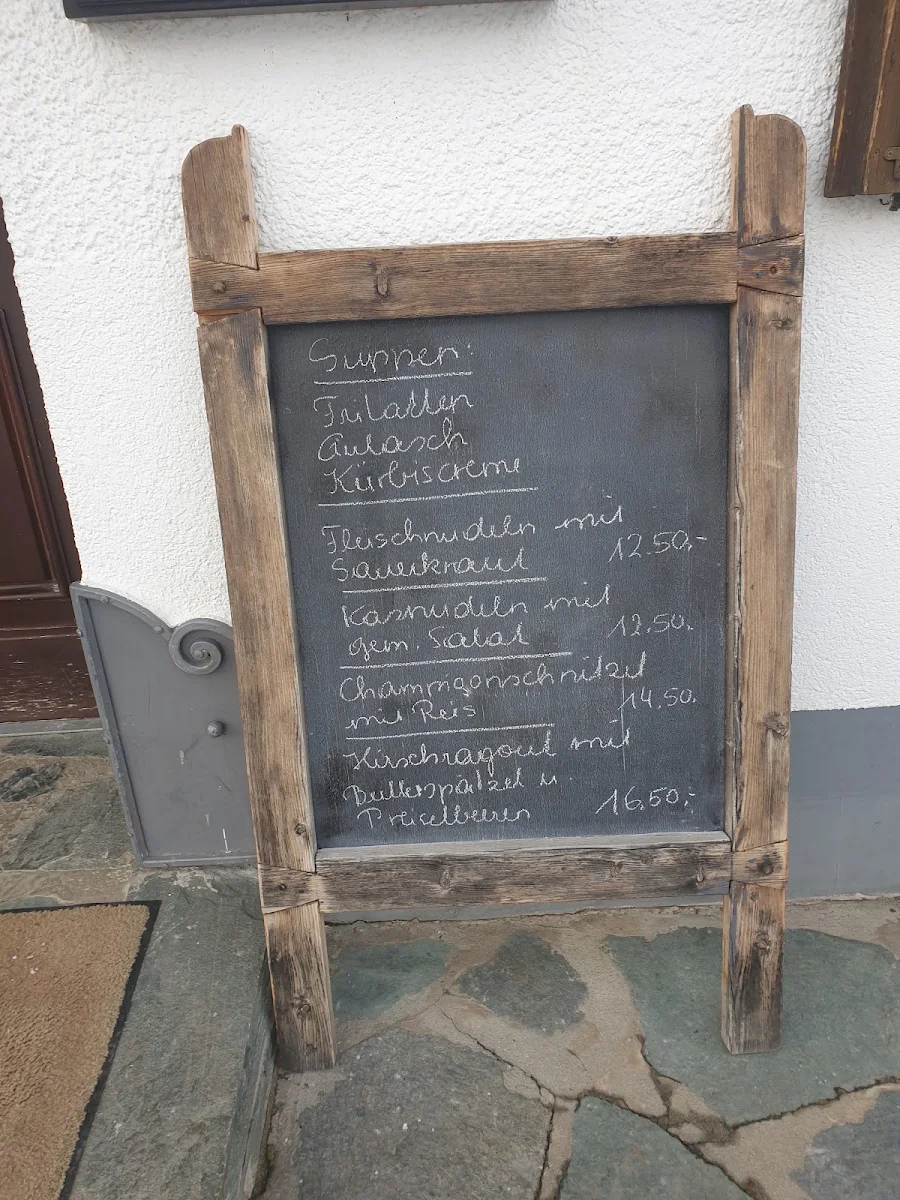 Suppen:
Fritatten
Gulasch
Kürbiscreme
Fleischnudeln mit
Sauerkraut 12.50,-
Kasnudeln mit
gem. Salat 12.50.
Champignonschnitzel
mit Reis 14.50.
Hirschragout mit
Butterspätzel u.
Preiselbeeren 16.50,-